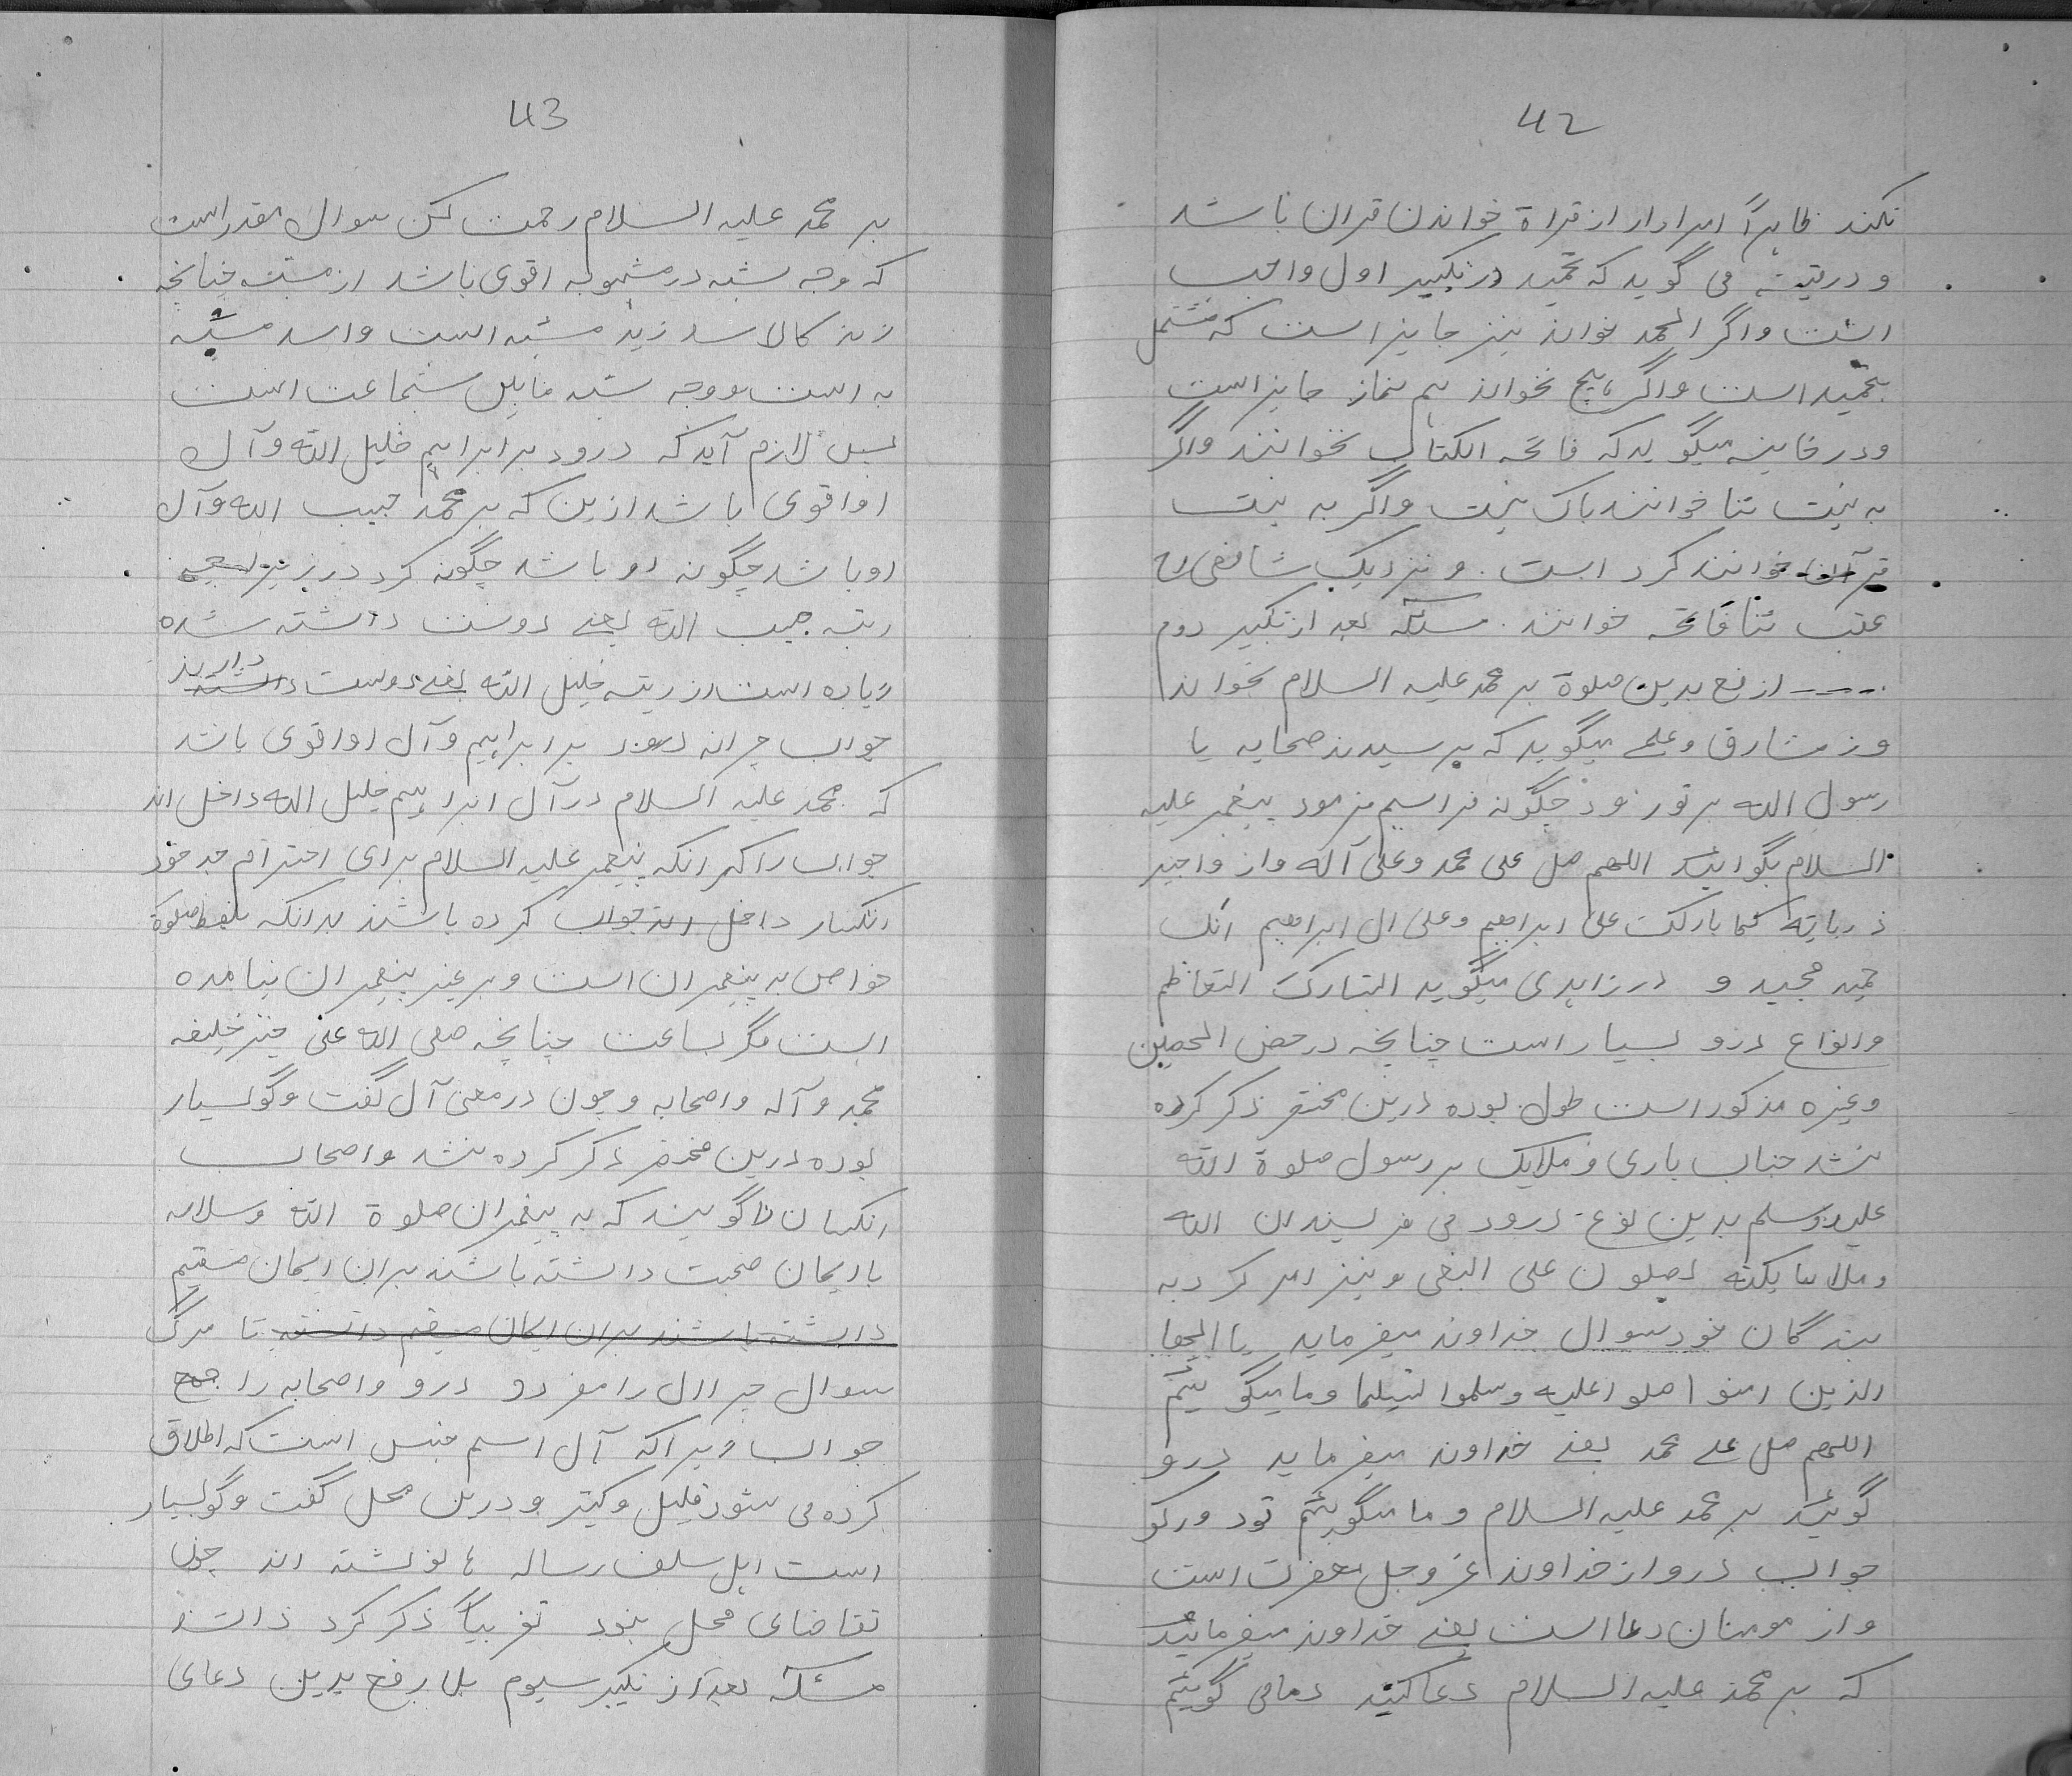 42
نکند ظاہراً مراد از قراة خواندن قران باشد
و در می گوید که تحمید در تکبیر اول واجب
است واگر الحمد خواند نیز جایز است که مشتمل
بحمید است واگر ہیچ نخواند ہم نماز جایز است
ودر خانیہ میگوید که فاتحہ الکتاب نخوانند واگر
بہ نیت ثنا خوانند باک نیست واگر بہ نیت
قرآن خوانند کرد است . و نزدیک شافعی رح
عقب ثنا فاتحہ خوانند . مسئلہ بعد از تکبیر دوم
---- از رفع یدین صلوة بر محمد علیہ السلام نخواند
و ز مشارق وعلمے میگوید که پرسیدند صحابہ یا
رسول اللہ بر تو درود چگونه فرسیم فرمود پیغمبر علیہ
السلام بگوایند اللھم صل علی محمد وعلی آلہ واز واجہ
ذریاتہ کما بارکت علی ابراھیم وعلی ال ابراھیم انک
حمید مجید و در زاہدی میگوید التبارک التعاظم
وانواع درو بسیار است چنانچہ در حصن الحصین
وغیرہ مذکور است طول بودہ درین مختصر ذکر کردہ
نشد جناب باری و ملایک بر رسول صلوة اللہ
علیہ وسلم بدین نوع درود می فرسیند ان اللہ
وملایکتہ یصلون علی النبی و نیز امر کرد بہ
بندگان خود سوال خداوند میفرماید یا ایھا
الذین امنو ا صلو ا علیہ وسلموا تسلیما وما میگوئیم
اللھم صل علے محمد یعنے خداوند میفرماید درو
گوئید بر محمد علیہ السلام و ما میگوئیم تود ورکو
جواب درو از خداوند عز وجل مغفرت است
واز مومنان دعا است یعنے خداوند میفرمائید
که بر محمد علیہ السلام دعا کنید دمامی گوئیم
43
بر محمد علیہ السلام رحمت کن سوال مقدر است
که وجہ شبہ در مشبوبہ اقوی باشد از مشبہ چنانچہ
زید کالاسد زید مشبہ است و اسد مشبہ
بہ است و وجہ شبہ مابین شجاعت است
پس لازم آید که درود بر ابراہیم خلیل اللہ وآل
او اقوی باشد ازین که بر محمد حبیب اللہ وآل
او باشد چگونه او باشد چگونه کرد در
رتبہ حبیب اللہ یعنے دوست داشتہ شدہ
زیادہ است از رتبہ خلیل اللہ یعنے دوست داشتہ دارند
جواب چرانہ درود بر ابراہیم وآل او اقوی باشد
که محمد علیہ السلام در آل ابراہیم خلیل اللہ داخل اند
جواب راکہ انکہ پیغمبر علیہ السلام برای احترام جد خود
انکسار داخل اند جواب کردہ باشند بدانکہ بلفظ صلوة
خواص بہ پیغمبران است وبر غیر پیغمبران نیامدہ
است مگر بساعت چنانچہ صلی اللہ علی خیر خلیفہ
محمد وآلہ واصحابہ وچون در معنی آل گفت وگو بسیار
بودہ درین مختصر ذکر کردہ نشد واصحاب
انکسان را گویند که بہ پیغمبران صلوة اللہ وسلامہ
با ایمان صحبت داشتہ باشند بران ایمان مستقیم
داشتہ باشند بران ایمان مستقیم داشتہ تا مرگ
سوال چرا ال را مفرد و درو واصحابہ را جمع
جواب زیراکہ آل اسم جنس است که اطلاق
کردہ می شود قلیل وکثیر ودرین محل گفت وگو بسیار
است اہل سلف رسالہ ہا نوشتہ اند چون
تقاضای محل نبود تقریباً ذکر کرد
مسئلہ بعد از تکبیر سیوم بلا رفع یدین دعای